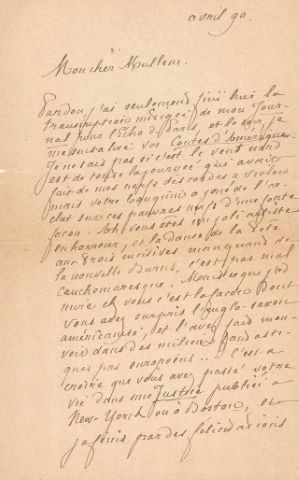 avril 90.
Mon cher Mullem.
Pardon, j'ai seulement fini hier la
transcription de mon Jour-
nal pour l'Echo de Paris, et le soir, je
me suis salivé vos Contes d'Amérique.
Je ne sais pas si c'est le vent du nord
est de toute la journée qui avait
fait de mes nerfs des cordes à violon
mais votre a joué de l'ar-
chet sur ces pauvres nerfs d'une forte
façon. Ah vous êtes un joli artiste
en horreur, et la danse de la tête
aux trois incisives manquantes de
la nouvelle Burns, c'est pas mal
cauchemaresque. Mais ce que j'ad-
mire chez vous c'est la façon dont
vous avez surpris l'anglo-saxon
américanisé, et l'avez fait mou-
voir dans des milieux fantasti-
ques pas européens... C'est à
croire que vous avez passé votre
vie dans une Justice publiée à
New-Yorck ou à Boston, et
je finis par des félicitations